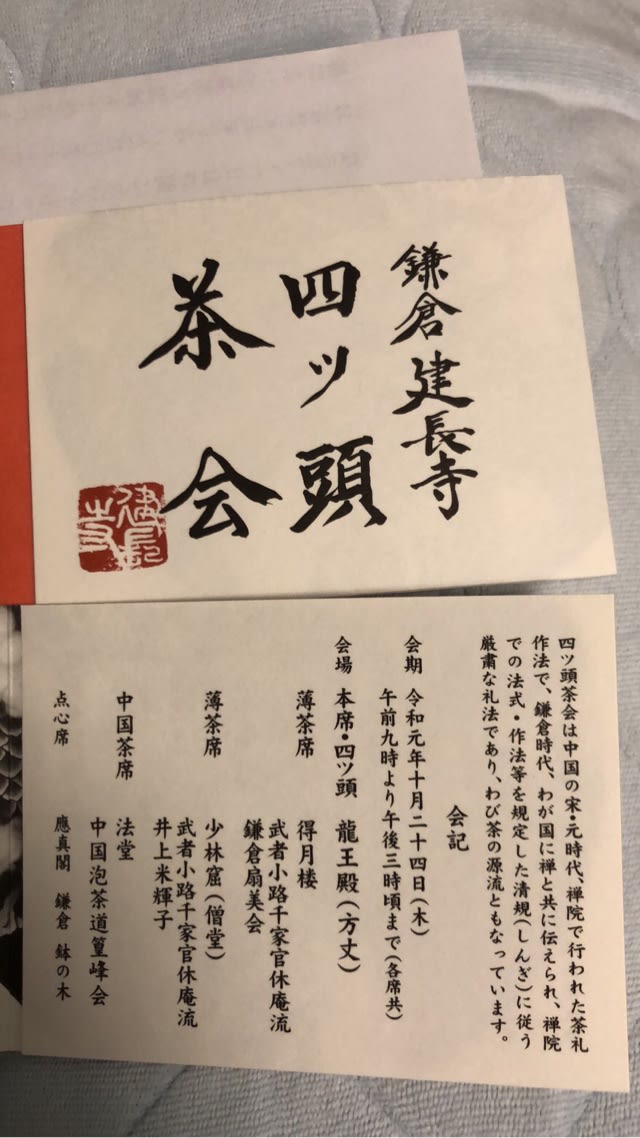 鎌倉建長寺
四ツ頭
茶会
建長寺
四ツ頭茶会は中国の宋・元時代、禅院で行われた茶礼
作法で、鎌倉時代、わが国に禅と共に伝えられ、禅院
での法式・作法等を規定した清規(しんぎ)に従う
厳粛な礼法であり、わび茶の源流ともなっています。
会記
会期 令和元年十月二十四日(木)
午前九時より午後三時頃まで(各席共)
会場 本席・四ツ頭 龍王殿(方丈)
薄茶席 得月楼
武者小路千家官休庵流
鎌倉扇美会
薄茶席 少林窟(僧堂)
武者小路千家官休庵流
井上米輝子
中国茶席 法堂
中国泡茶道篁峰会
点心席 應真閣 鎌倉 鉢の木